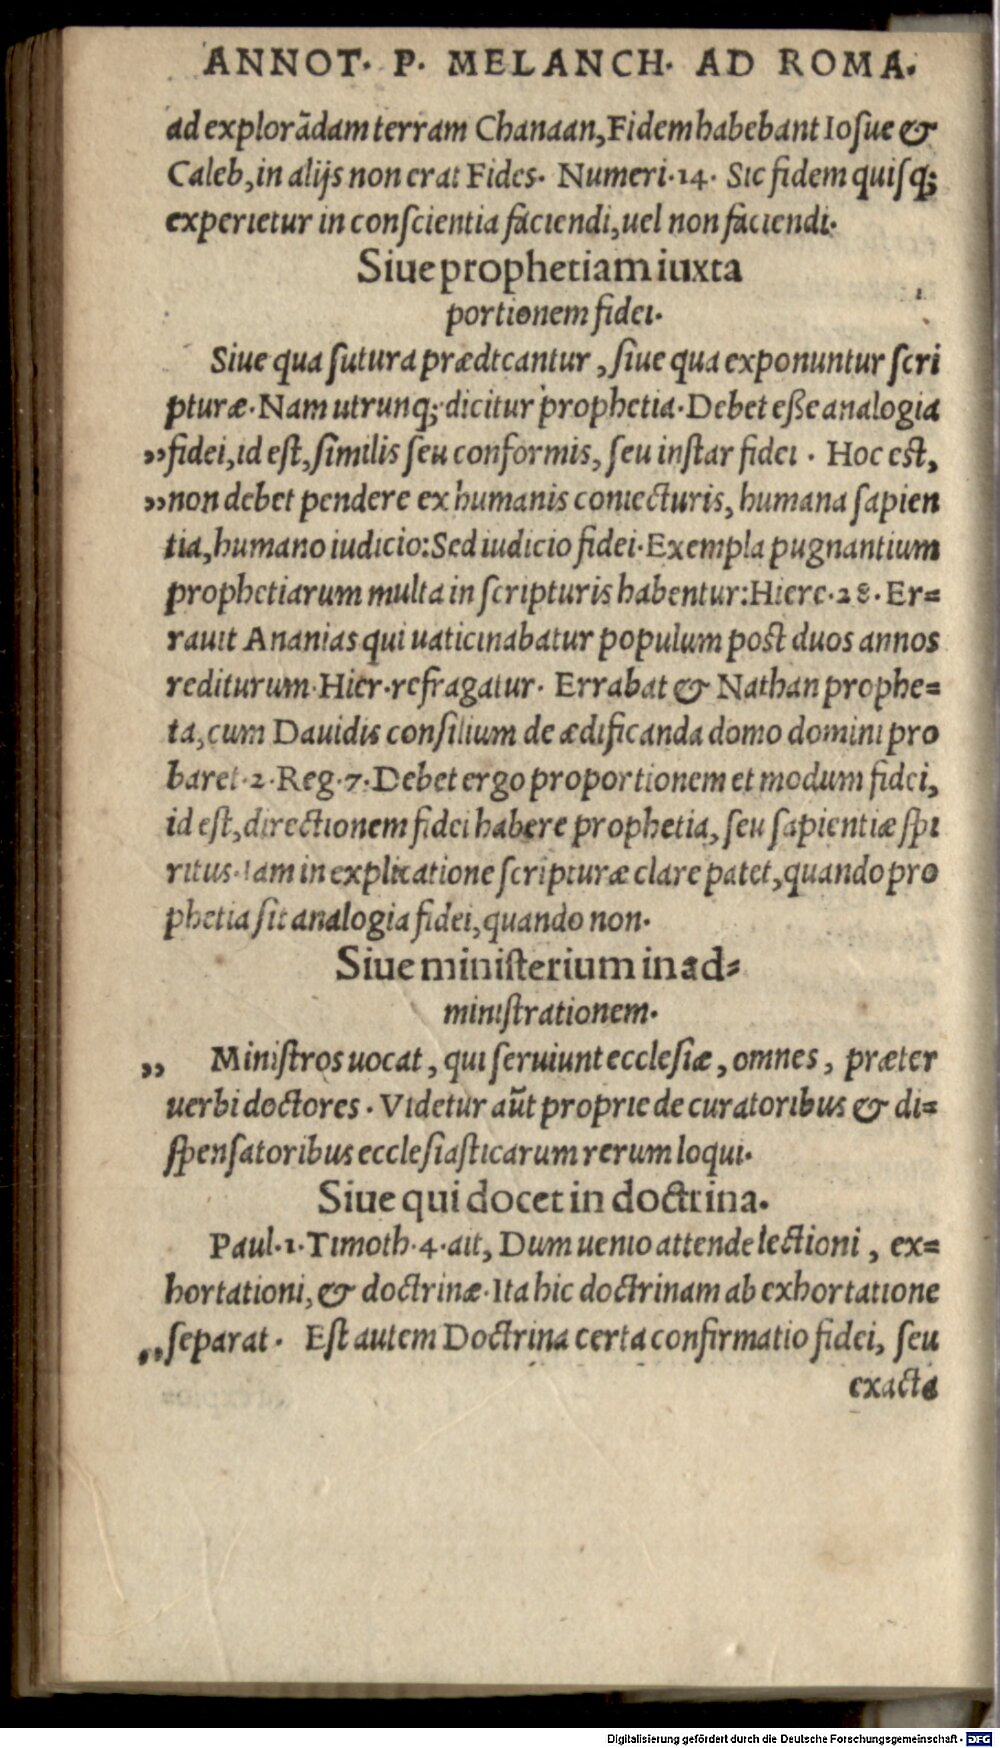 ANNOT. P. MELANCH. AD ROMA.
ad explorādam terram Chanaan, Fidem habebant Iosue &
Caleb, in alijs non erat Fides. Numeri. 14. Sic fidem quisq;
experietur in conscientia faciendi, uel non faciendi.
Siue prophetiam iuxta
portionem fidei.
Siue qua futura prædicantur, siue qua exponuntur scri
pturæ. Nam utrunq; dicitur prophetia. Debet eße analogia
„fidei, id est, similis seu conformis, seu instar fidei. Hoc est,
„non debet pendere ex humanis coniecturis, humana sapien
tia, humano iudicio: Sed iudicio fidei. Exempla pugnantium
prophetiarum multa in scripturis habentur: Hiere. 28. Er=
rauit Ananias qui uaticinabatur populum post duos annos
rediturum. Hier. refragatur. Errabat & Nathan prophe=
ta, cum Dauidis consilium de ædificanda domo domini pro
baret. 2. Reg. 7. Debet ergo proportionem et modum fidei,
id est, directionem fidei habere prophetia, seu sapientiæ spi
ritus. Iam in explicatione scripturæ clare patet, quando pro
phetia sit analogia fidei, quando non.
Siue ministerium in ad=
ministrationem.
„ Ministros uocat, qui seruiunt ecclesiæ, omnes, præter
uerbi doctores. Videtur aūt proprie de curatoribus & di=
spensatoribus ecclesiasticarum rerum loqui.
Siue qui docet in doctrina.
Paul. 1. Timoth. 4. ait, Dum uenio attende lectioni, ex=
hortationi, & doctrinæ. Ita hic doctrinam ab exhortatione
„separat. Est autem Doctrina certa confirmatio fidei, seu
exacta
Digitalisierung gefördert durch die Deutsche Forschungsgemeinschaft - DFG